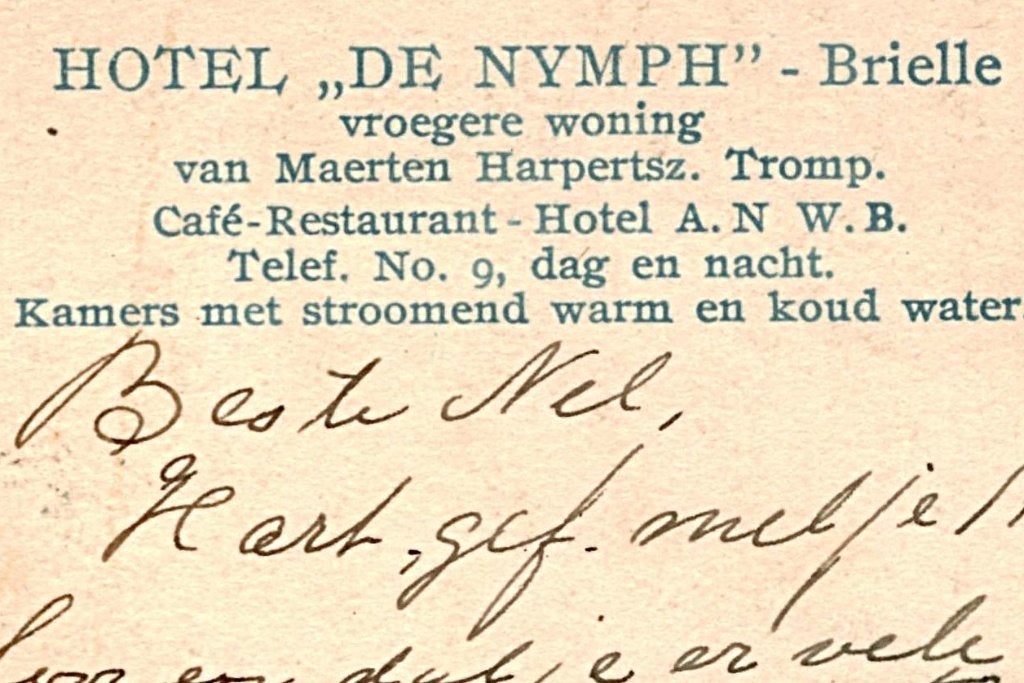 HOTEL „DE NYMPH” - Brielle
vroegere woning
van Maerten Harpertsz. Tromp.
Café-Restaurant - Hotel A. N W. B.
Telef. No. 9, dag en nacht.
Kamers met stroomend warm en koud water.
Beste Nel,
Hart. gef. met je
dat je er vele